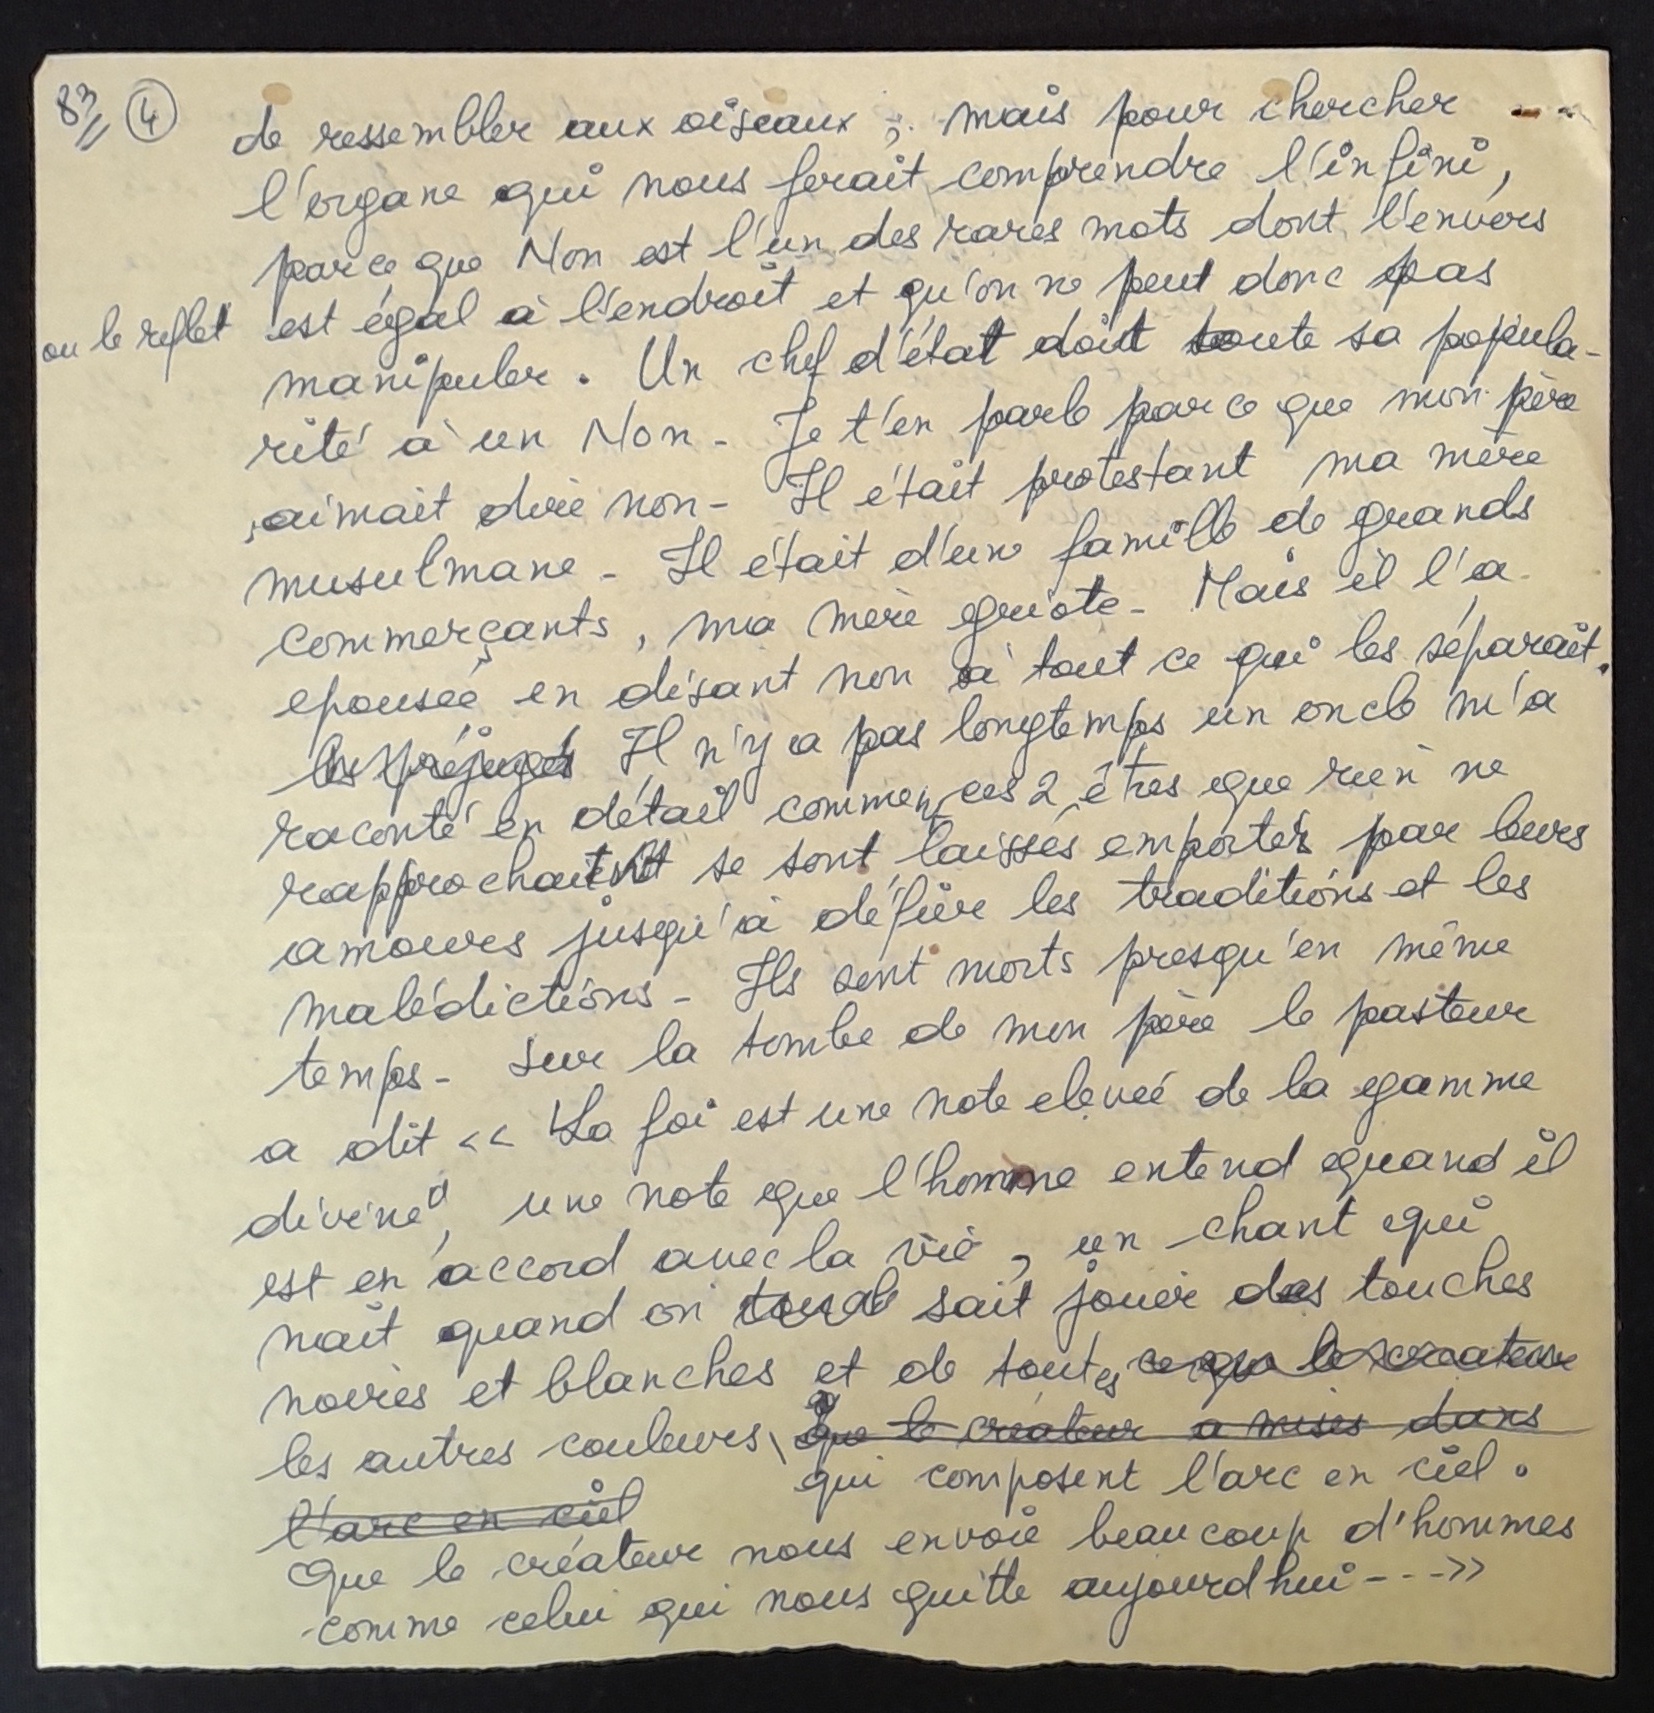 83 ④
de ressembler aux oiseaux ; mais pour chercher
l'organe qui nous ferait comprendre l'infini,
parce que Non est l'un des rares mots dont l'envers
ou le reflet est égal à l'endroit et qu'on ne peut donc pas
manipuler. Un chef d'état doit toute sa popula-
rité à un Non - Je t'en parle parce que mon père
aimait dire non - Il était protestant ma mère
musulmane - Il était d'une famille de grands
commerçants, ma mère griote - Mais il l'a
epousée en disant non à tout ce qui les séparait.
les préjugés Il n'y a pas longtemps un oncle m'a
raconté en détail comment ces 2 êtres que rien ne
rapprochait se sont laissés emporter par leurs
amours jusqu'à défier les traditions et les
malédictions - Ils sont morts presqu'en même
temps - Sur la tombe de mon père le pasteur
a dit << La foi est une note elevée de la gamme
divine", une note que l'homme entend quand il
est en accord avec la vie, un chant qui
naît quand on sait jouer des touches
noires et blanches et de toutes ce que le createur
les autres couleurs que le créateur a mises dans
qui composent l'arc en ciel.
l'arc en ciel
Que le créateur nous envoie beaucoup d'hommes
comme celui qui nous quitte aujourd'hui - - - >>